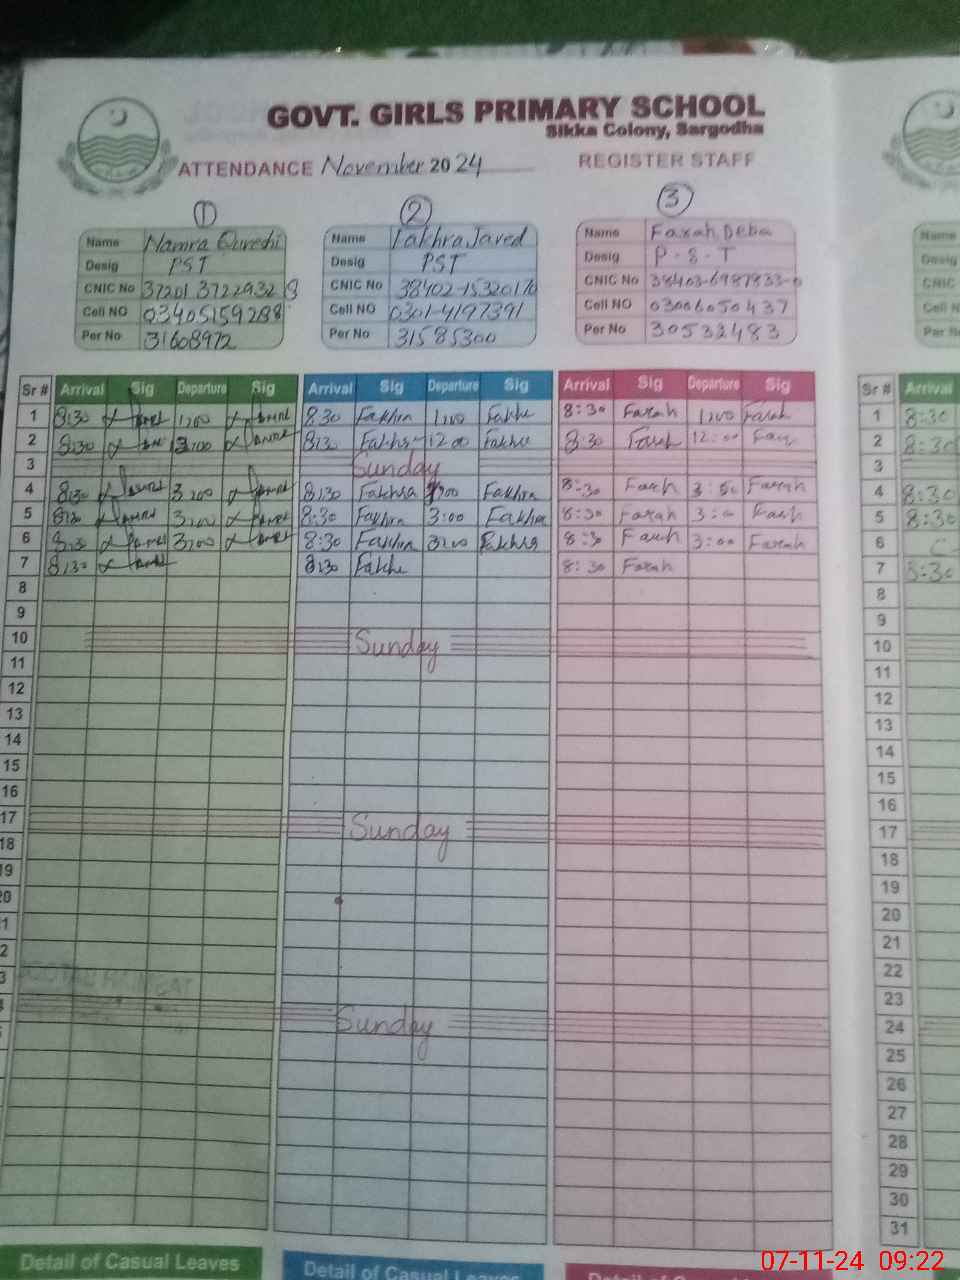 GOVT. GIRLS PRIMARY SCHOOL
Sikka Colony, Sargodha
ATTENDANCE November 2024 REGISTER STAFF
1 2 3
Name Namra Qureshi Name Fakhra Javed Name Farah Deba Name
Desig PST Desig PST Desig P.S.T Desig
CNIC No 37201 3722932 8 CNIC No 38402-1532017 CNIC No 38403-6987833-0 CNIC
Cell NO 03405159288 Cell NO 0301-4197391 Cell NO 03066050437 Cell N
Per No 31608972 Per No 31585300 Per No 30532483 Per N
Sr # Arrival Sig Departure Sig Arrival Sig Departure Sig Arrival Sig Departure Sig Sr # Arrival
1 8:30 1:00 8:30 Fakhra 1:00 Fakhr 8:30 Farah 1:00 Farah 1 8:30
2 8:30 12:00 8:30 Fakhr 12:00 Fakhr 8:30 Farah 12:00 Far 2 8:30
3 Sunday 3
4 8:30 3:00 8:30 Fakhra 3:00 Fakhra 8:30 Farah 3:00 Farah 4 8:30
5 8:30 3:00 8:30 Fakhra 3:00 Fakhra 8:30 Farah 3:00 Farah 5 8:30
6 8:30 3:00 8:30 Fakhra 3:00 Fakhra 8:30 Farah 3:00 Farah 6 C-
7 8:30 8:30 Fakhr 8:30 Farah 7 8:30
8 8
9 9
10 Sunday 10
11 11
12 12
13 13
14 14
15 15
16 16
17 Sunday 17
18 18
19 19
20 20
1 21
2 22
3 23
Sunday 24
25
26
27
28
29
30
31
Detail of Casual Leaves Detail of Casual Leaves
07-11-24 09:22